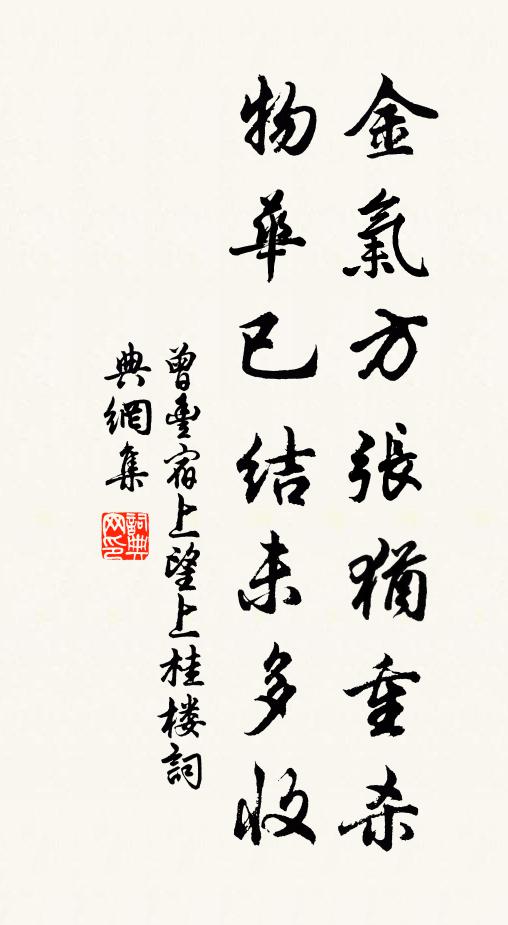 金氣方張猶重杀
物華已结未多收
曾豐宿上望上桂楼詞
典網集
詞典
网印